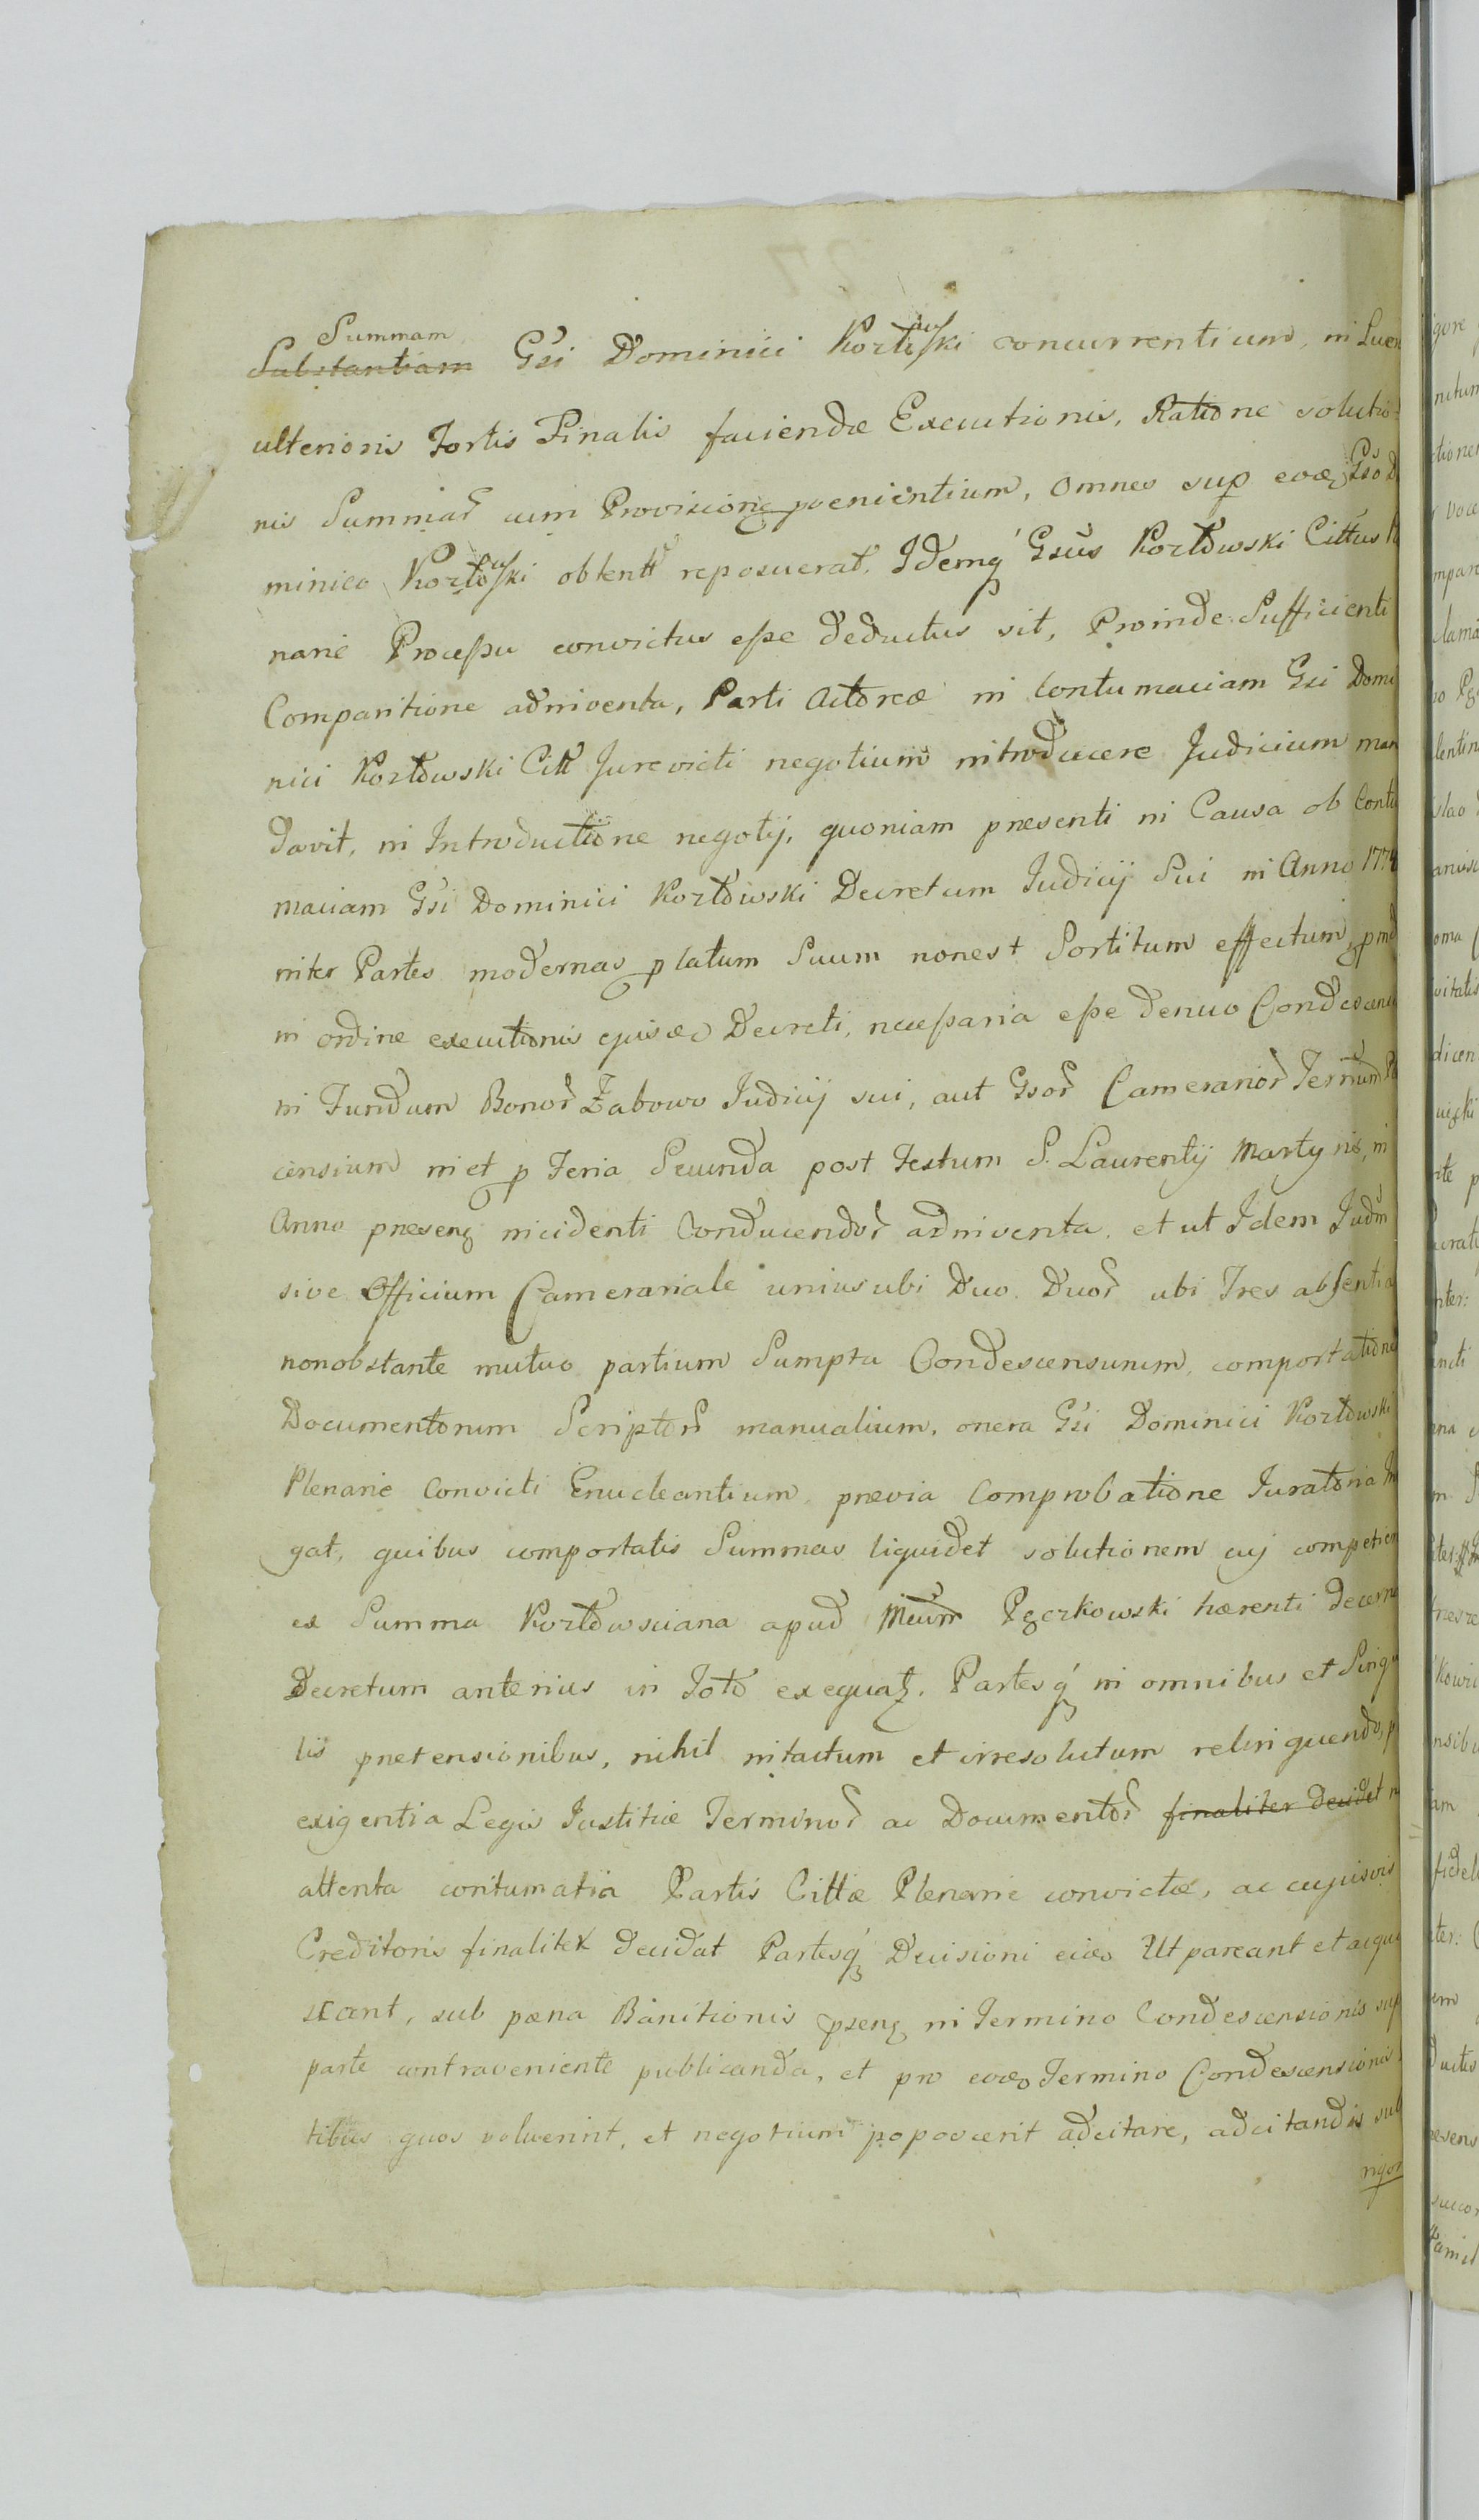 Summam
Substantiam Gsi Dominici Kozłowski concurrentium, in Luen
ulterioris Fortis Finalis faciendæ Executionis, Ratione solutio
nis Summar cum Provisione pvenientium, omnes sup eode Gso Do
minico Kozłowski obtentt reposuerat. Idemq Gsus Kozłowski Cittus
narie Processu convictus esse deductus sit, Proinde Sufficienti
Comparitione adinventa, Parti Actoreæ in Contumaciam Gsi Domi
nici Kozłowski Citt Jurevicti negotium introducere Judicium man
davit, in Introductione negotij, quoniam præsenti in Causa ob Contu
maciam Gsi Dominici Kozłowski Decretum Judicij Sui in Anno 177
inter Partes modernas platum Suum nonest Sortitum effectum,
in ordine executionis ejusdem Decreti, necessaria esse denuo Condescens
in Fundum Bonor Żabowo Judicij sui, aut Gsor Camerarior Terrum
censium in et p Feria Secunda post Festum S. Laurentij Martyris, in
Anno præsenq incidenti Conducendor adinventa, et ut Idem Judm
sive Officium Camerariale unius ubi Duo Duor ubi Tres absentia
nonobstante mutuo partium Sumptu Condescensurum, comportatione
Documentorum Scriptor manualium, onera Gsi Dominici Kozłowski
Plenarie Convicti Enucleantium, prævia Comprobatione Juratoria In
gat, quibus comportatis Summas liquidet solutionem cuj competien
ex Summa Kozłowsciana apud Pęczkowski hærenti decerna
Decretum anterius in Toto exequat. Partesq in omnibus et Singu
lis prætensionibus, nihil intactum et irresolutum relinquendo, p
exigentia Legis Justitiæ Terminor ac Documentor finaliter decidet
attenta contumatia Partis Cittæ Plenarie convictæ, ac cujusvis
Creditoris finaliter decidat Partesq Decisioni eidem Ut pareant et acqui
scant, sub pæna Banitionis pseng in Termino Condescensionis sup
parte contraveniente publicanda, et pro eodem Termino Condescensionis
tibus quos voluerint, et negotium poposcerit adcitare, adcitandis sub
rigor